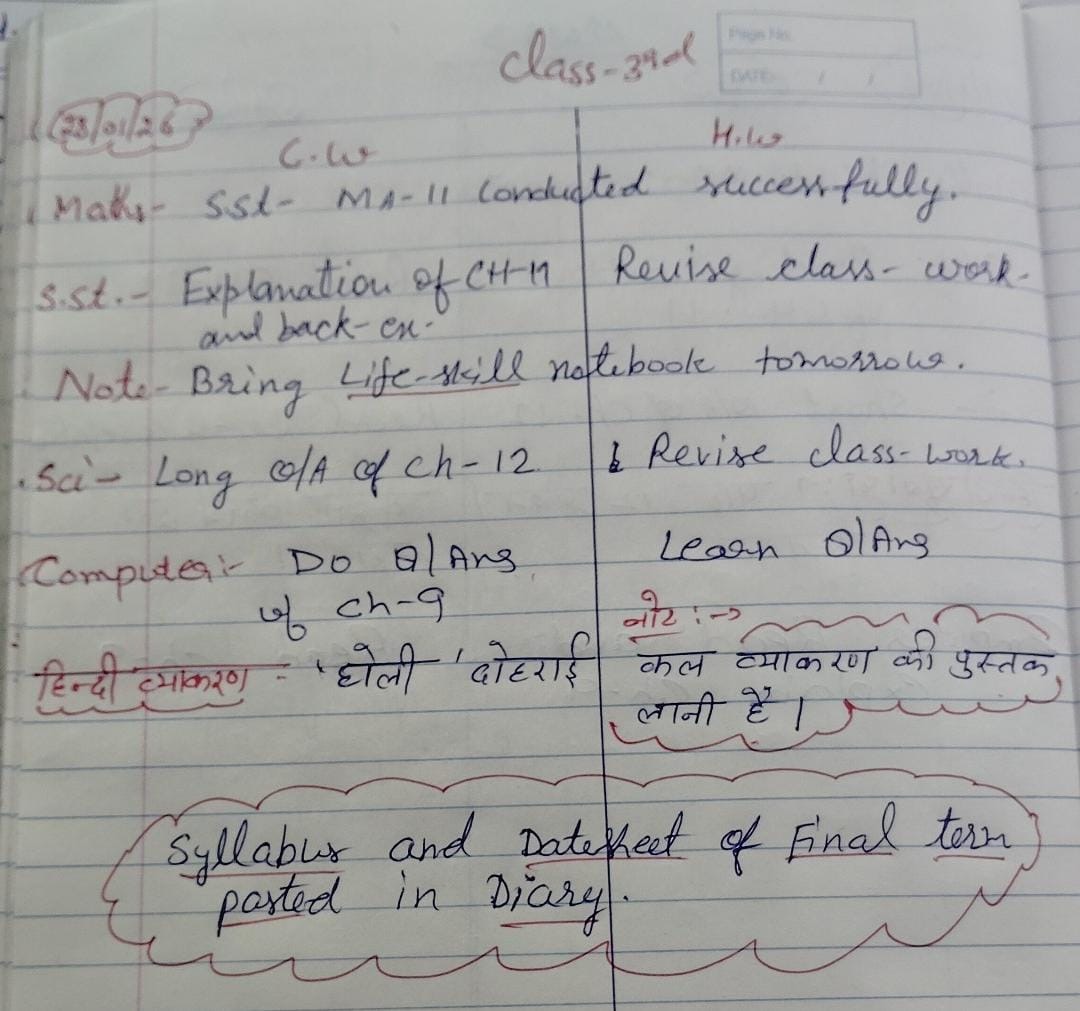 Class-3rd
Page No.
DATE: / /
28/01/26
C.W
H.W
Maths- Sst- MA-11 Conducted successfully.
S.st.- Explanation of CH-11 Revise class-work-
and back-ex-
Note- Bring Life-skill notebook tomorrow.
Sci- Long Q/A of Ch-12. Revise class-work.
Computer:- Do Q/Ans Learn Q/Ans
of Ch-9
नोट :->
हिन्दी व्याकरण - 'होली' दोहराई कल व्याकरण की पुस्तक
लानी है ।
Syllabus and Datesheet of Final term
pasted in Diary.